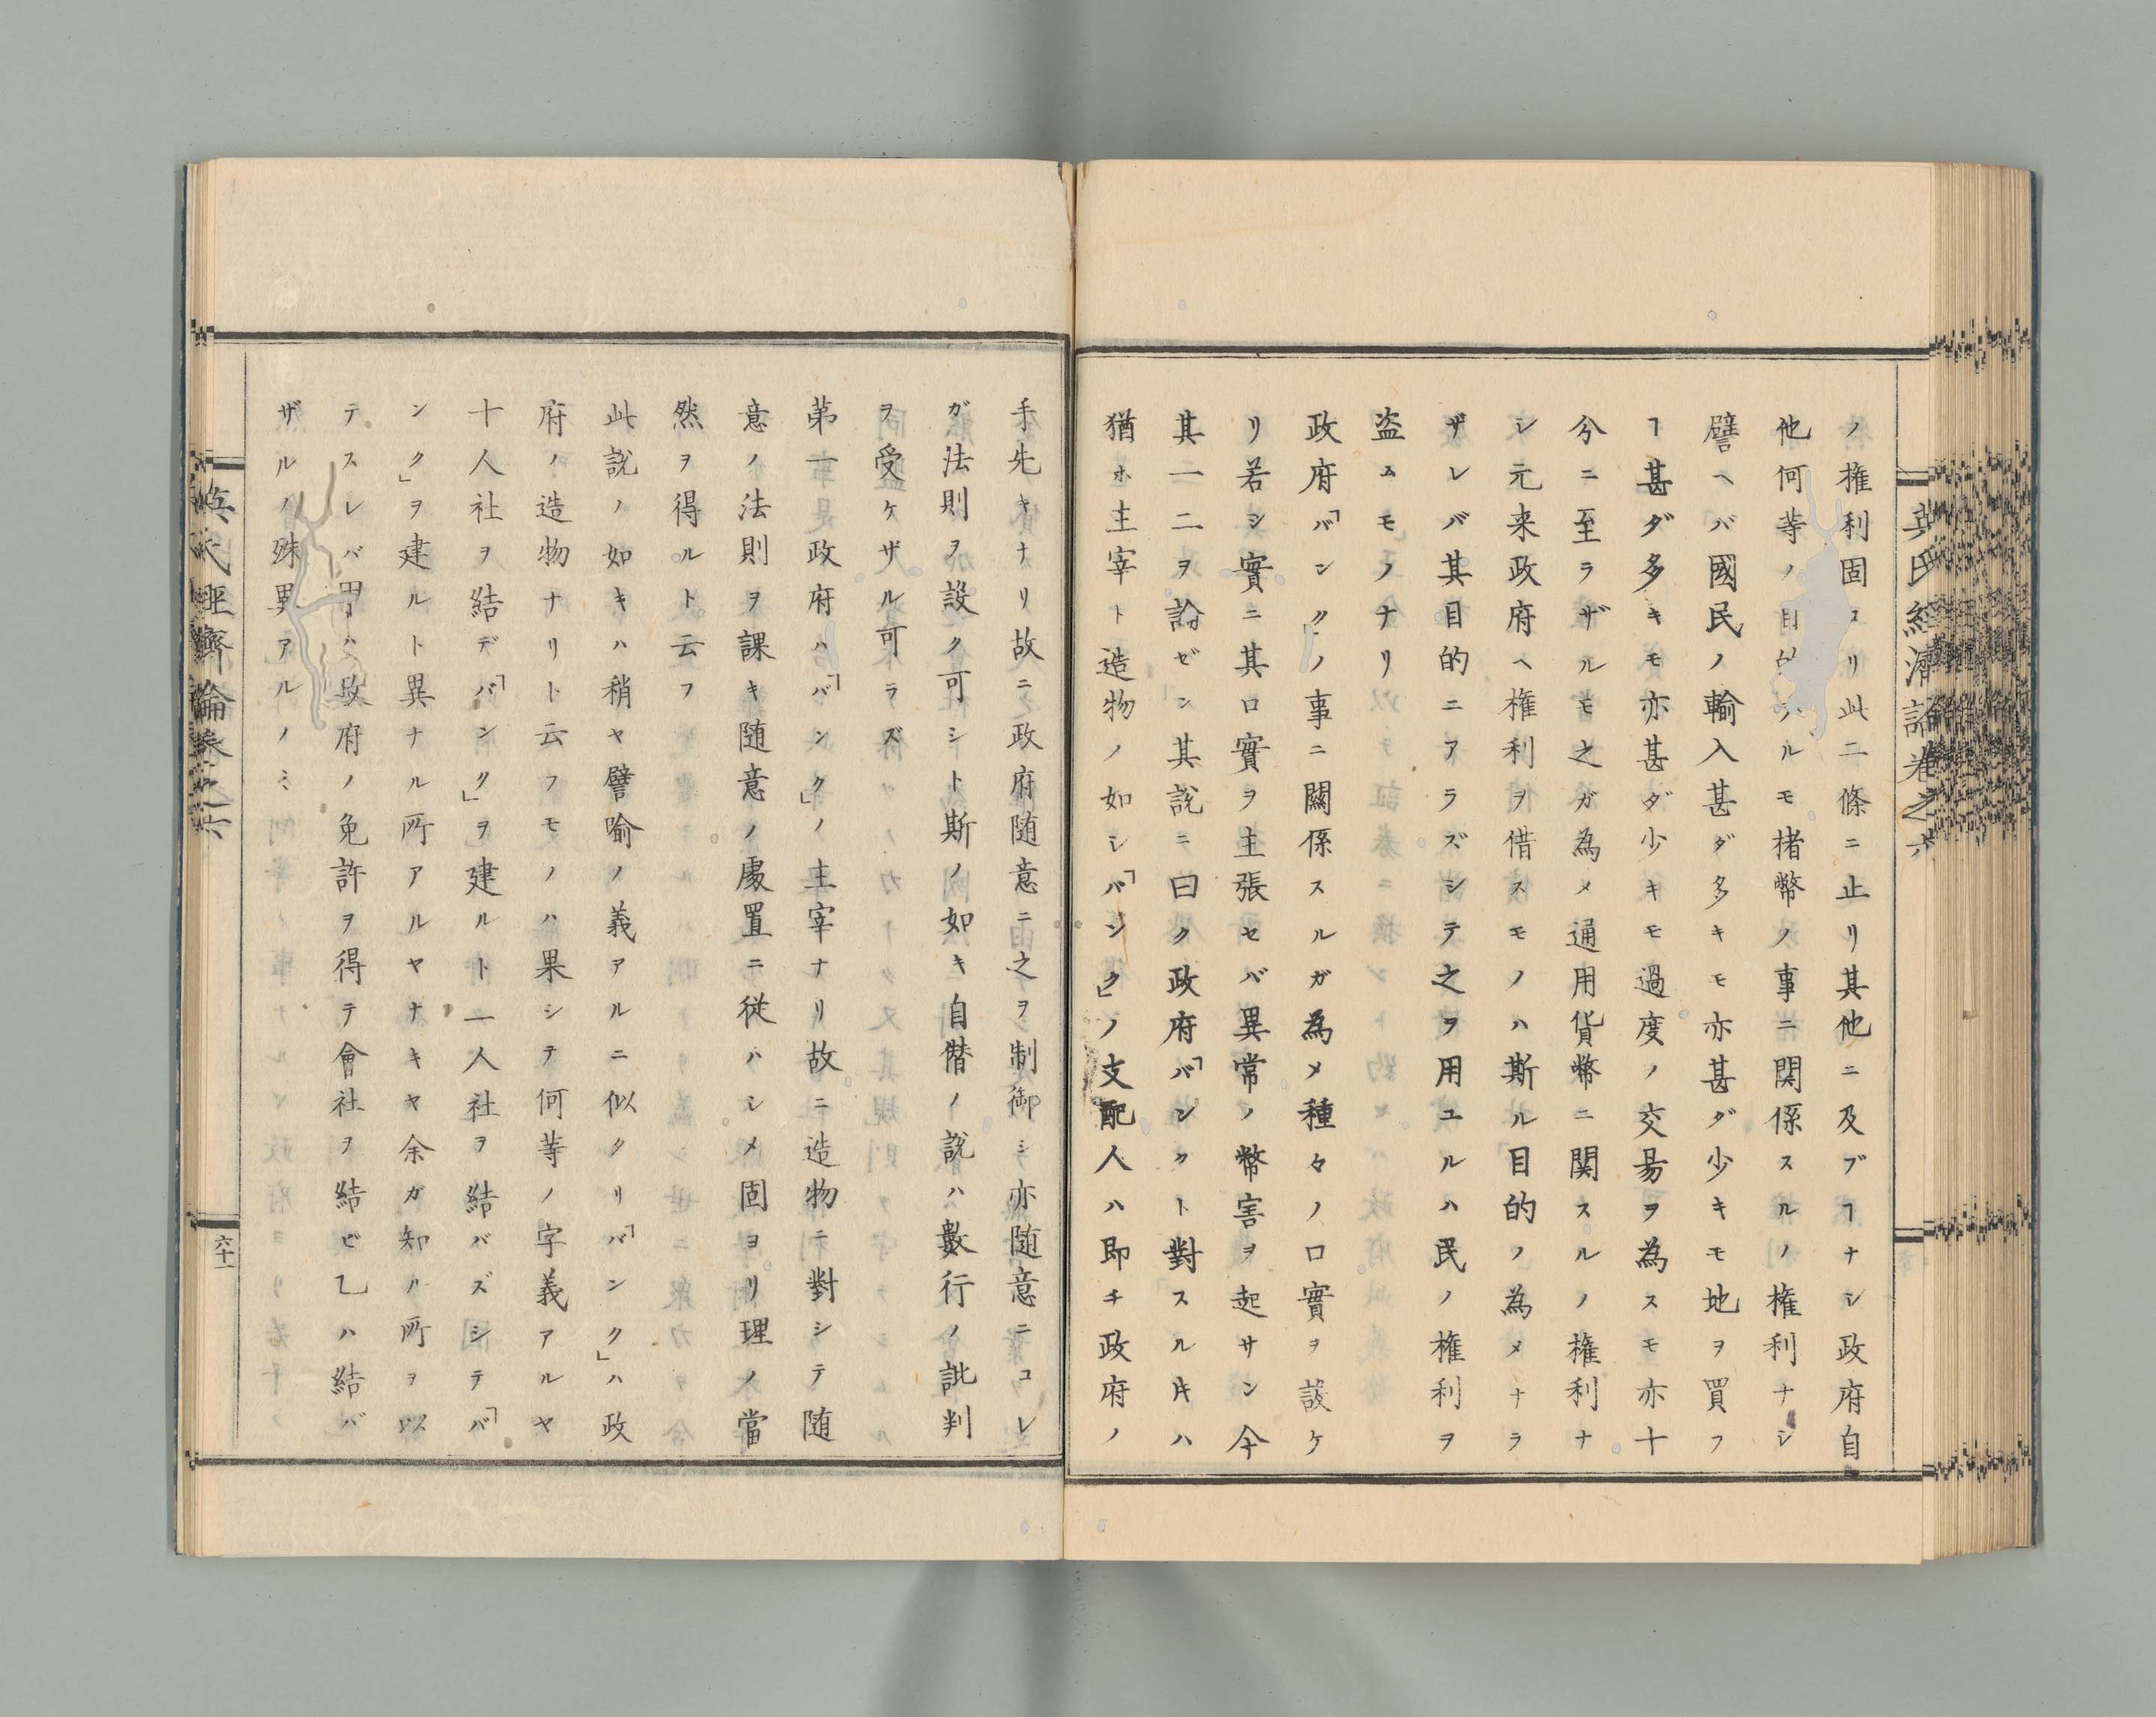 ノ権利固ヨリ此二條ニ止リ其他ニ及ブヿナシ政府自
他何等ノ目的アルモ楮幣ノ事ニ関係スルノ権利ナシ
譬ヘバ國民ノ輸入甚ダ多キモ亦甚ダ少キモ地ヲ買フ
ヿ甚ダ多キモ亦甚ダ少キモ過度ノ交易ヲ為スモ亦十
分ニ至ラザルモ之ガ為メ通用貨幣ニ関スルノ権利ナ
シ元来政府ヘ権利ヲ借スモノハ斯ル目的ノ為メナラ
ザレバ其目的ニアラズシテ之ヲ用ユルハ民ノ権利ヲ
盗ムモノナリ
政府「バンク」ノ事ニ關係スルガ為メ種々ノ口實ヲ設ケ
リ若シ實ニ其口實ヲ主張セバ異常ノ幣害ヲ起サン今
其一二ヲ論ゼン其説ニ曰ク政府「バンクト對スル𪜈ハ
猶ホ主宰ト造物ノ如シ「バンク」ノ支配人ハ即チ政府ノ
英氏経濟論巻之六
手先キナリ故ニ政府随意ニ之ヲ制御シ亦随意ニコレ
ガ法則ヲ設ク可シト斯ノ如キ自僣ノ説ハ數行ノ訛判
ヲ受ケザル可ラズ
第一政府ハ「バンク」ノ主宰ナリ故ニ造物ニ對シテ随
意ノ法則ヲ課キ随意ノ處置ニ従ハシメ固ヨリ理ノ當
然ヲ得ルト云フ
此説ノ如キハ稍ヤ譬喩ノ義アルニ似タリ「バンク」ハ政
府ノ造物ナリト云フモノハ果シテ何等ノ字義アルヤ
十人社ヲ結デ「バンク」ヲ建ルト一人社ヲ結バズシテ「バ
ンク」ヲ建ルト異ナル所アルヤナキヤ余ガ知ル所ヲ以
テスレバ甲ハ政府ノ免許ヲ得テ會社ヲ結ビ乙ハ結バ
ザルノ殊異アルノミ
英氏経濟論巻之六
六十一